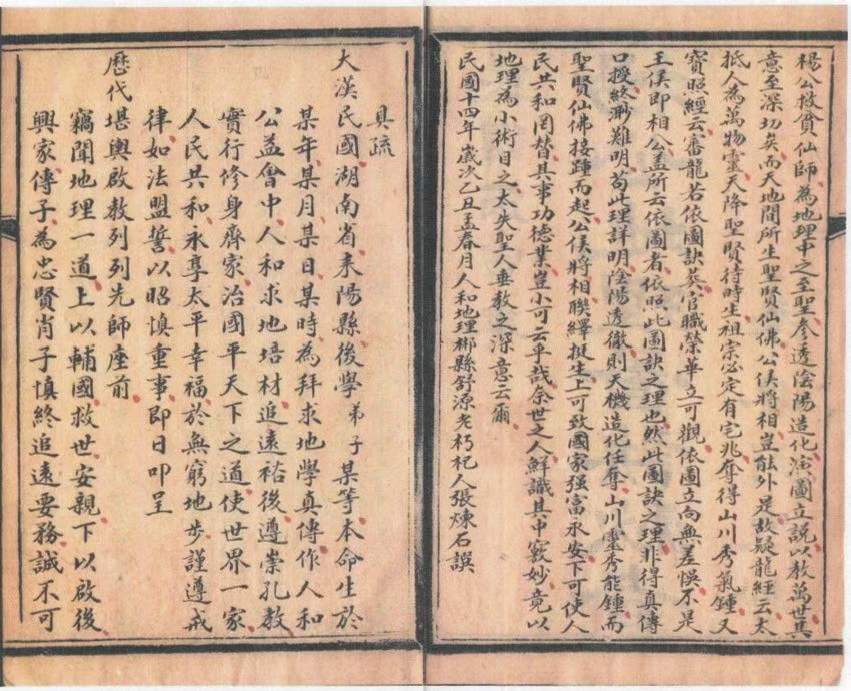 楊公救貧仙師為地理中之至聖參透陰陽造化演圖立說以教萬世其
意至深切矣而天地間所生聖賢仙佛公侯將相豈能外是故疑龍經云太
抵人為萬物靈天降聖賢待時生祖宗必定有宅兆奪得山川秀氣鍾又
寶照經云審龍若依圖訣葬官職榮華立可觀依圖立向無差悞不是
王侯即相公盖所云依圖者依照此圖訣之理也然此圖訣之理非得真傳
口授終渺難明苟此理詳明陰陽透徹則天機造化任奪山川靈秀能鍾而
聖賢仙佛接踵而起公侯將相聯繹挺生上可致國家强富永安下可使人
民共和罔替其事功德業豈小可云乎哉余世之人鮮識其中竅妙竟以
地理為小術目之太失聖人垂教之深意云爾
民國十四年歲次乙丑孟春月人和地理郴縣舒源老朽杞人張煉石譔
具疏
大漢民國湖南省耒陽縣後學弟子某等本命生於
某年某月某日某時為拜求地學真傳作人和
公益會中人和求地培材追遠裕後遵崇孔教
實行修身齊家治國平天下之道使世界一家
人民共和永享太平幸福於無窮地步謹遵戒
律如法盟誓以昭慎重事即日叩呈
歷代堪輿啟教列列先師座前
竊聞地理一道上以輔國救世安親下以啟後
興家傳子為忠賢肖子慎終追遠要務誠不可